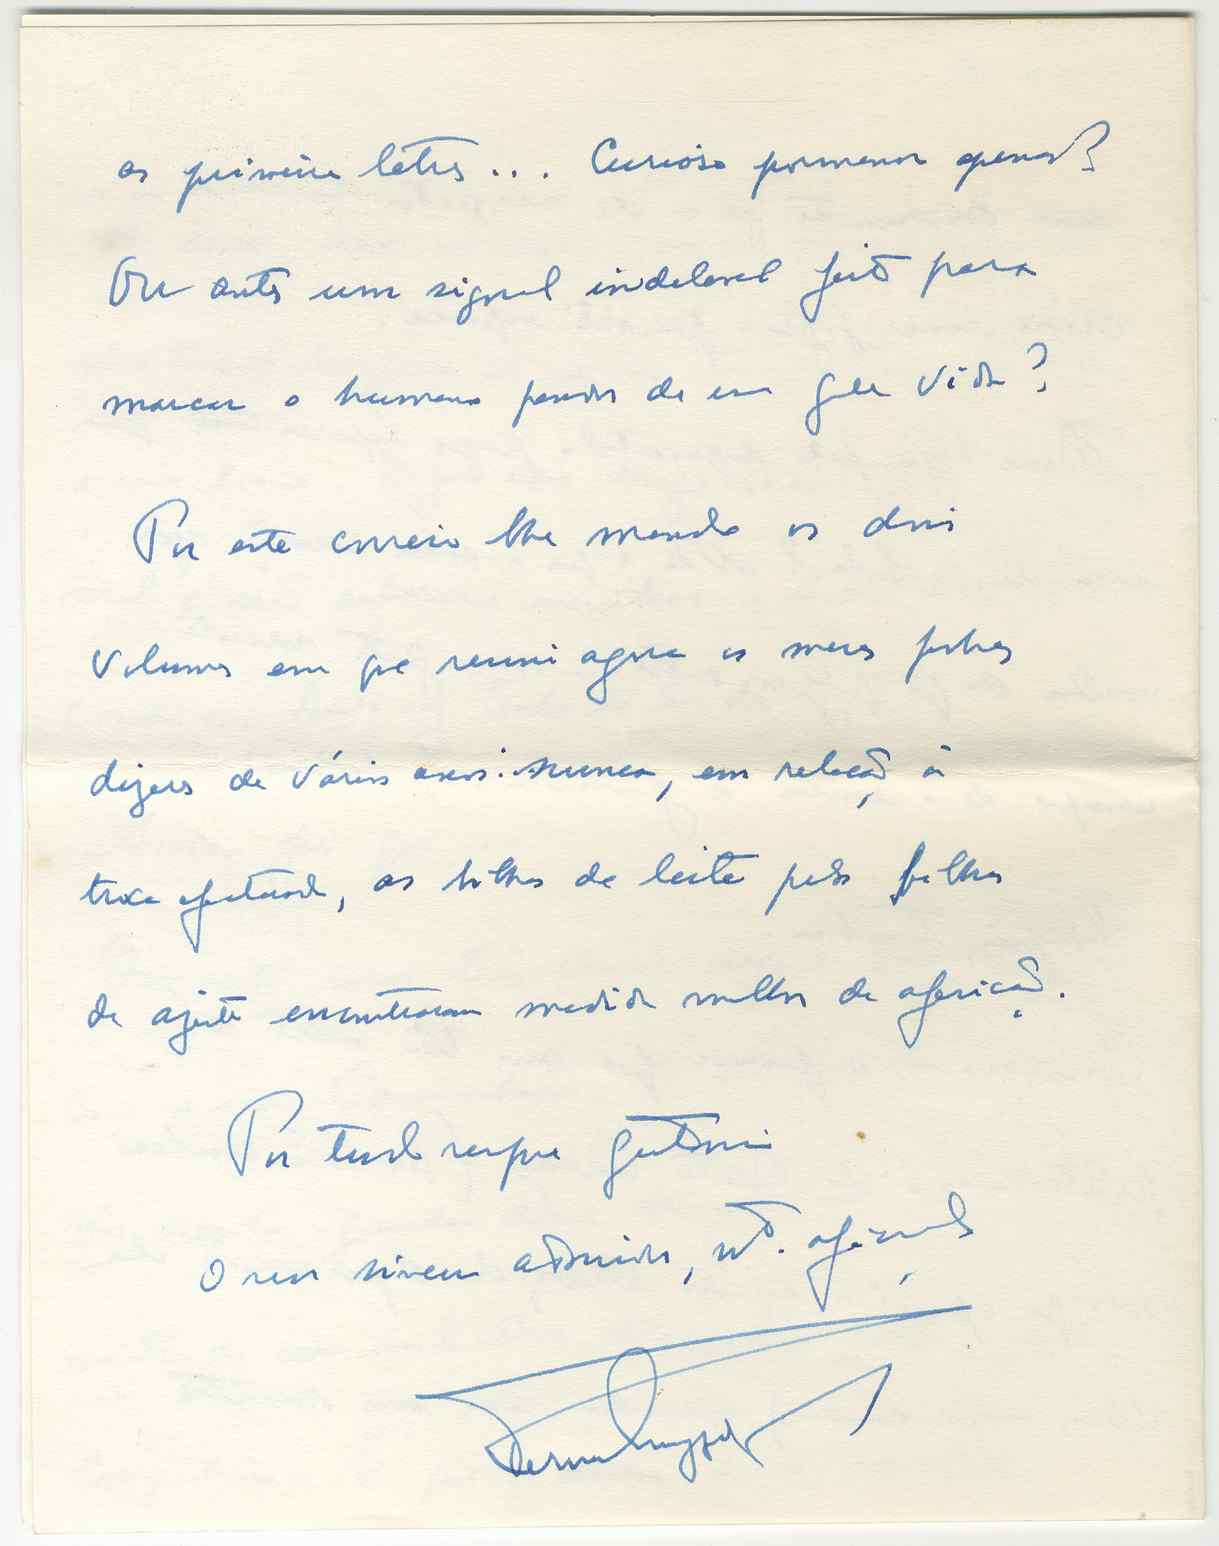 as primeiras letras... Curioso pormenor apenas?
Ou antes um signal indelevel feito para
marcar o humano pendor de uma grande vida?
Por este correio lhe mando os dois
volumes em que reuni agora os meus pobres
dizeres de vários anos. Nunca, em relação à
troca efectuada, as bilhas de leite pelas bilhas
de azeite encontraram medida melhor de aferição.
Por tudo sempre gratíssimo
O seu sincero admirador, mto. afeiçoado